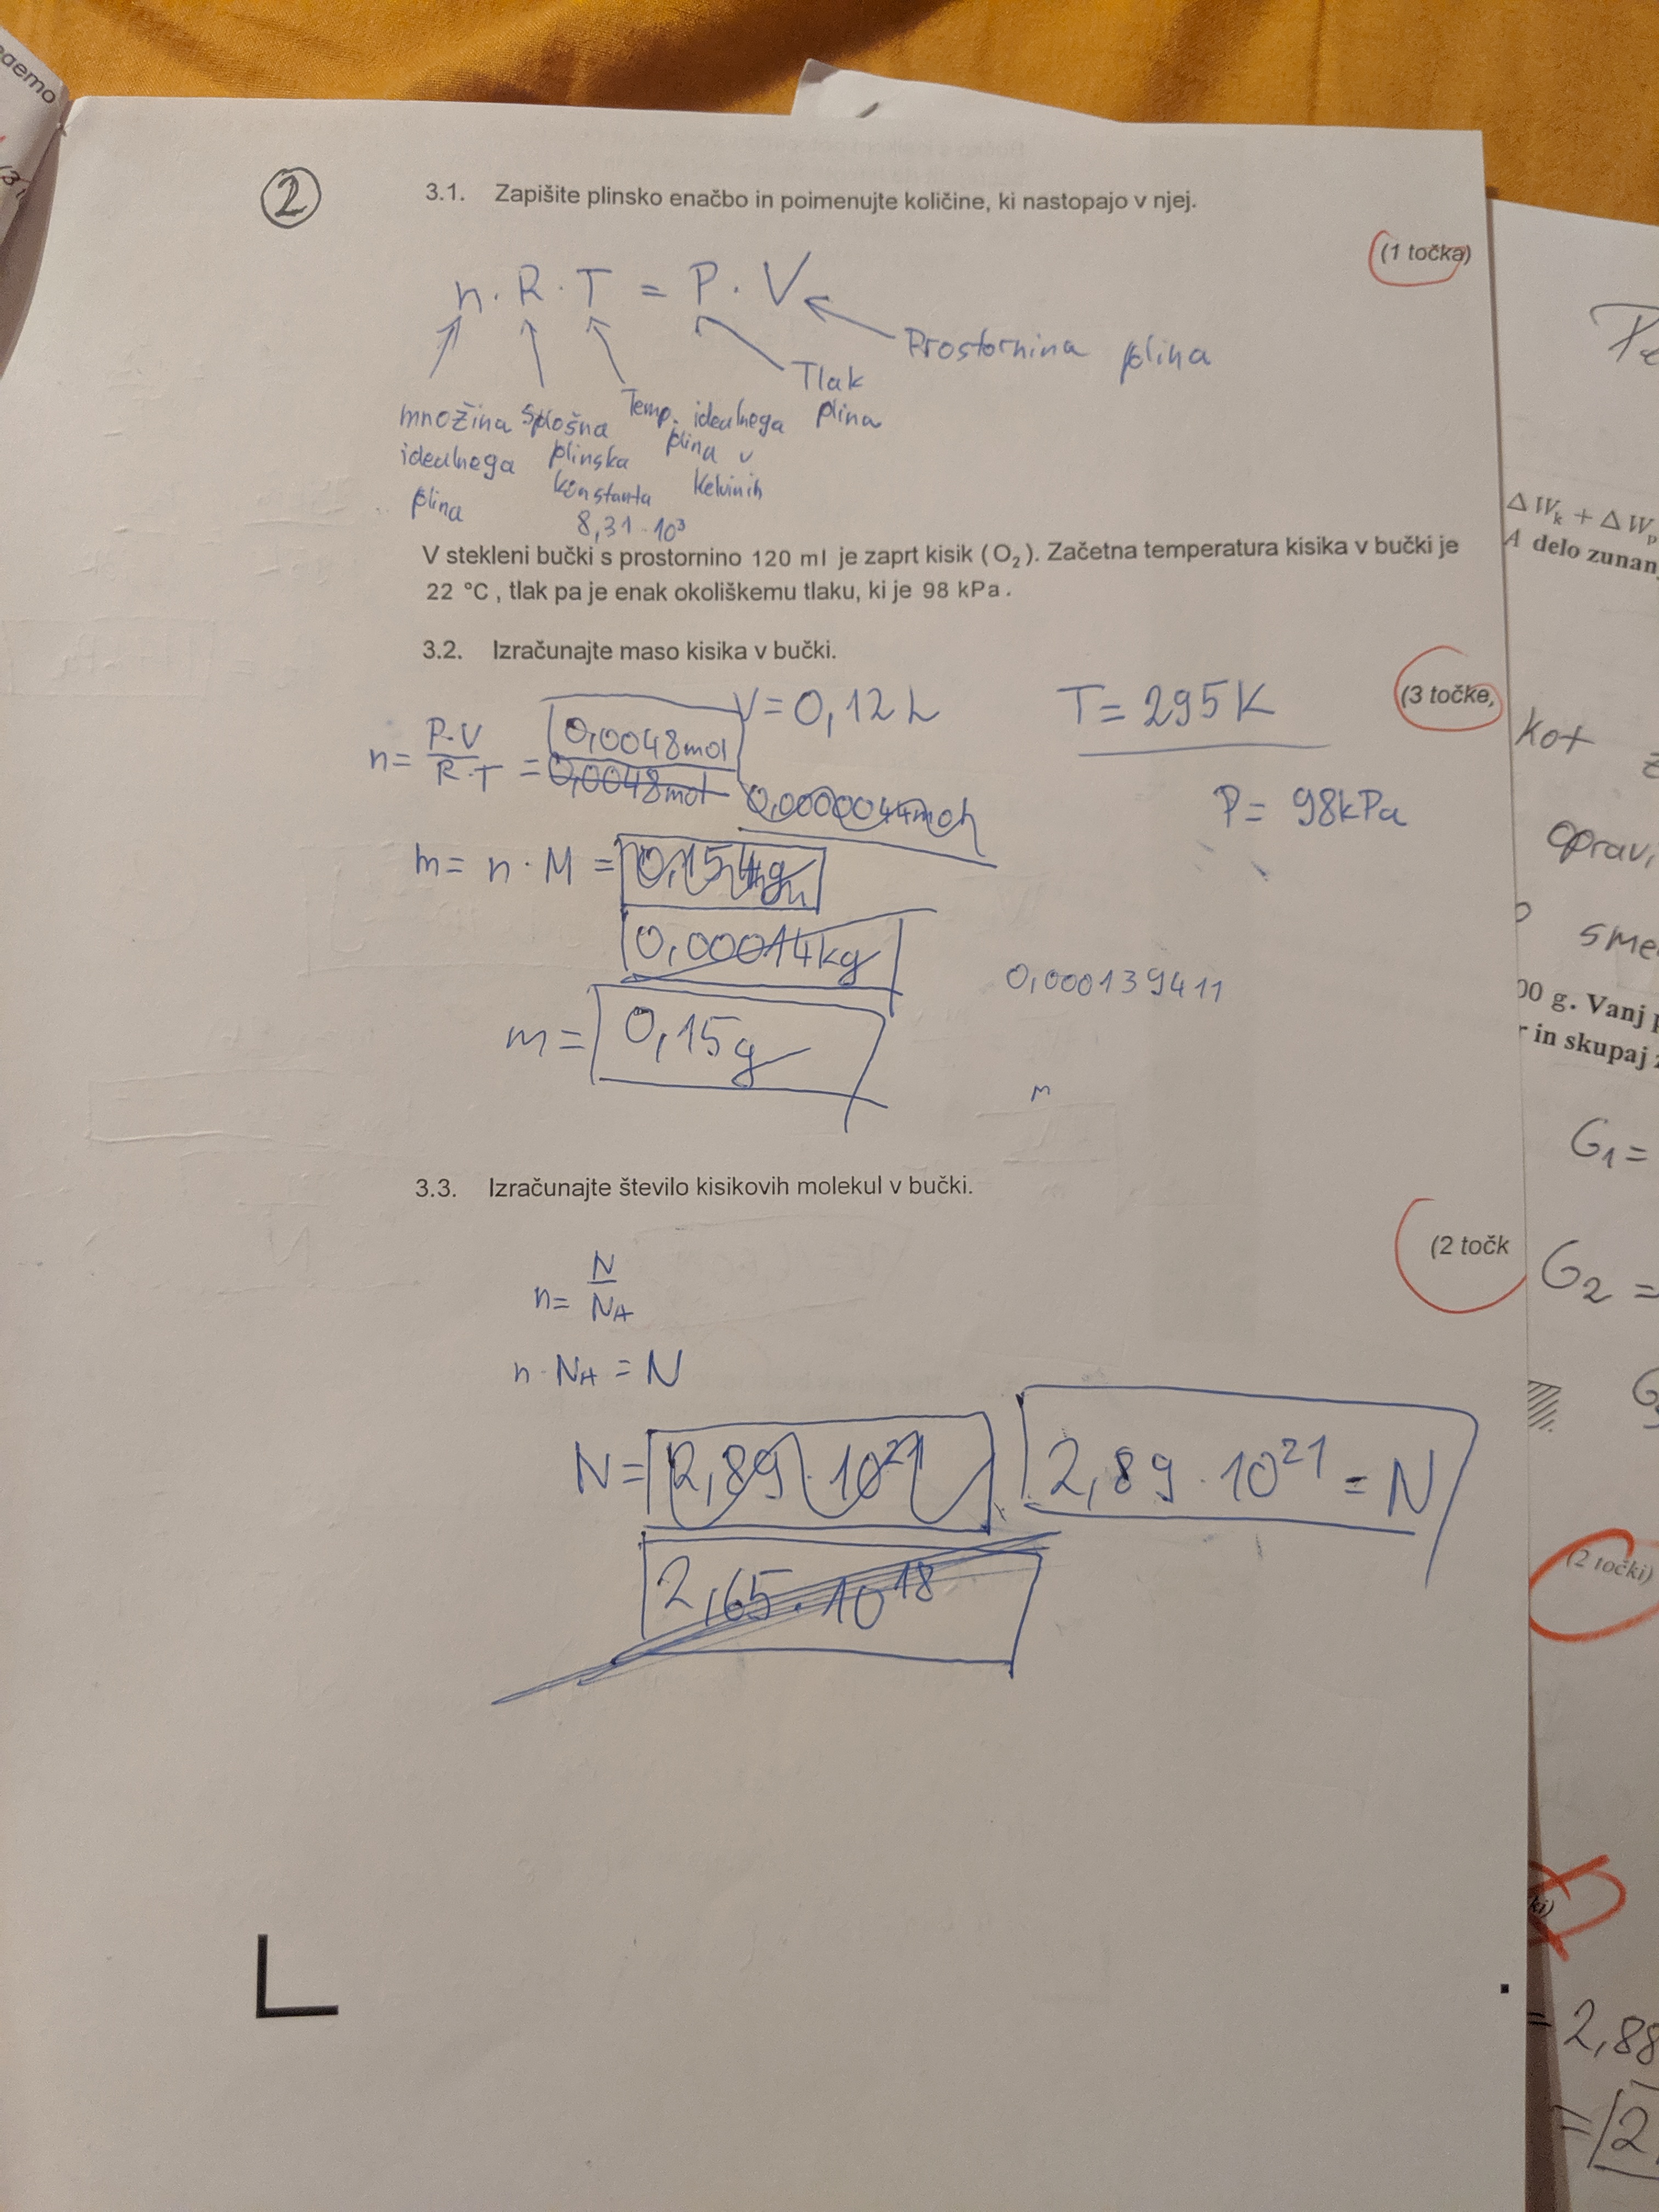 gaemo
2
3.1. Zapišite plinsko enačbo in poimenujte količine, ki nastopajo v njej.
(1 točka)
n · R · T = P · V
Prostornina plina
Tlak
plina
Temp. idealnega
plina v
Kelvinih
množina
idealnega
plina
splošna
plinska
konstanta
8,31 · 10³
V stekleni bučki s prostornino 120 ml je zaprt kisik (O₂). Začetna temperatura kisika v bučki je
22 °C, tlak pa je enak okoliškemu tlaku, ki je 98 kPa.
3.2. Izračunajte maso kisika v bučki.
(3 točke,
V = 0,12 L
T = 295 K
P = 98 kPa
n = P·V / R·T = 0,0048 mol
0,0048 mol 0,0000044 mol
m = n · M = 0,154 g
0,00014 kg
0,000139411
m = 0,15 g
m
3.3. Izračunajte število kisikovih molekul v bučki.
(2 točk
n = N / NA
n · NA = N
N = 2,89 · 10²¹
2,89 · 10²¹ = N
2,65 · 10¹⁸
ΔWk + ΔWp
A delo zunan
kot
opravi
sme
00 g. Vanj p
r in skupaj z
G₁ =
G₂ =
G
(2 točki)
ki)
= 2,88
= 2